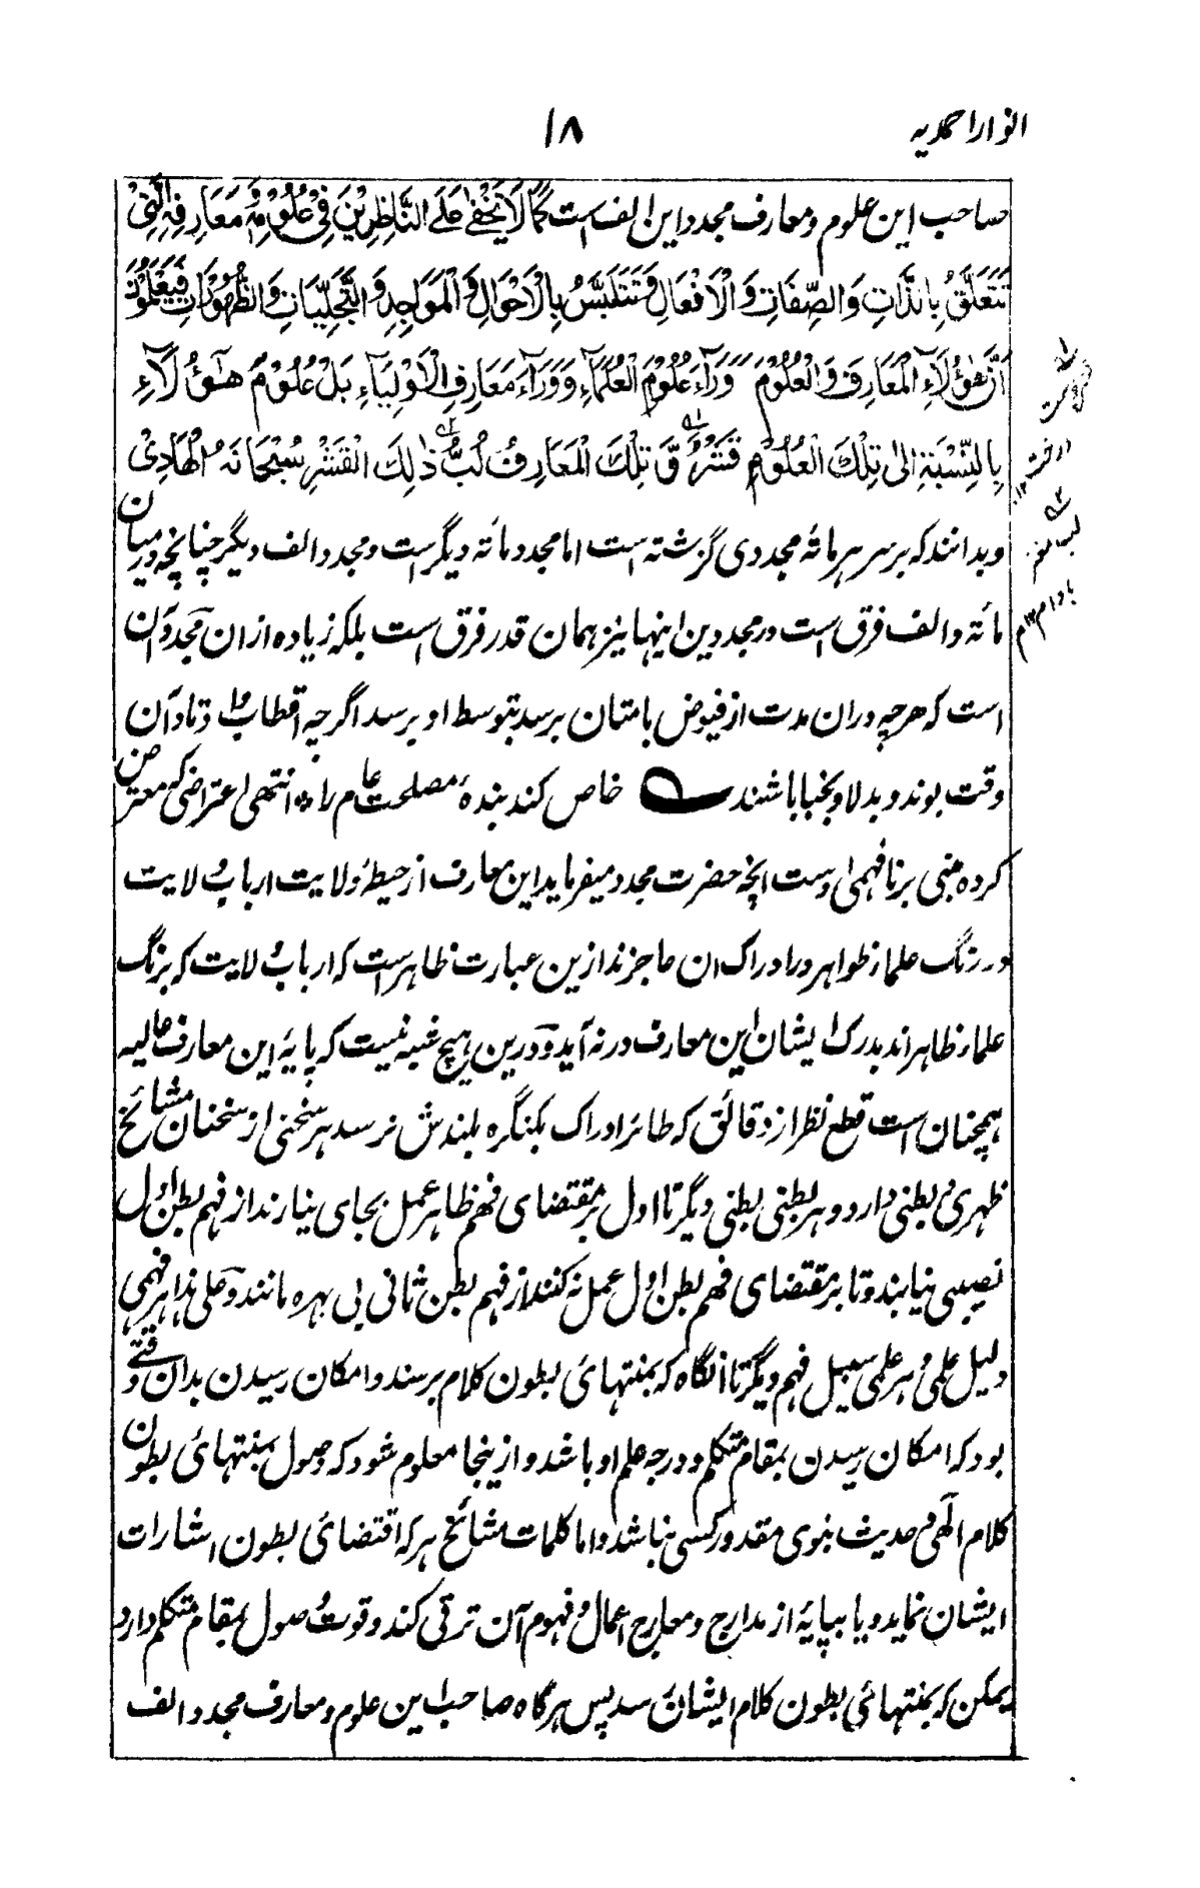 انوار احمدیہ
۱۸
صاحب این علوم و معارف مجدد این الف است كَمَا لَا يَخْفٰى عَلَى النَّاظِرِيْنَ فِيْ عُلُوْمِهٖ وَمَعَارِفِهِ الَّتِيْ
تَتَعَلَّقُ بِالذَّاتِ وَالصِّفَاتِ وَالْاَفْعَالِ وَتَتَلَبَّسُ بِالْاَحْوَالِ وَالْمَوَاجِيدِ وَالتَّجَلِّيَاتِ وَالظُّهُوْرَاتِ فَيَعْلَمُوْنَ
اَنَّ هٰؤُلَاءِ الْمَعَارِفَ وَالْعُلُوْمَ وَرَاءَ عُلُوْمِ الْعُلَمَاءِ وَوَرَاءَ مَعَارِفِ الْاَوْلِيَاءِ بَلْ عُلُوْمُ هٰؤُلَاءِ
بِالنِّسْبَةِ اِلٰى تِلْكَ الْعُلُوْمِ قَشْرٌ وَّ تِلْكَ الْمَعَارِفُ لُبُّ ذٰلِكَ الْقَشْرِ سُبْحَانَهُ الْهَادِيْ
وبدانند که بر سر هر مائۀ مجددی گزشته است اما مجدد مائۀ دیگر است و مجدد الف دیگر چنانچه درمیان
مائۀ و الف فرق است در مجددین اینها نیز همان قدر فرق است بلکه زیاده ازان و مجدد آن
است که هرچه دران مدت از فیوض بامتان برسد بتوسط او برسد اگرچه اقطاب و اوتاد آن
وقت بوند و بدلا و نجبا باشند خاص کند بندۀ مصلحت عام را * انتهی اعتراضی که معترض
کرده مبنی بر نافهمی اوست انچه حضرت مجدد میفرماید این معارف از حیطۀ ولایت ارباب ولایت
در رنگ علماء ظواهر در ادراک ان عاجزند ازین عبارت ظاهر است که ارباب ولایت که برنگ
علماء ظاهراند بدرک ایشان این معارف در نه آید و درین هیچ شبه نیست که پایۀ این معارف عالیه
همچنان است قطع نظر از دقائق که طائر ادراک بکنگره بلندش نرسد هر سخنی از سخنان مشائخ
ظهری و بطنی دارد و هر بطنی بطنی دیگر تا اول بر مقتضای فهم ظاهر عمل بجای نیارند از فهم بطن اول
نصیبی نیابند و تا بر مقتضای فهم بطن اول عمل نه کنند از فهم بطن ثانی بی بهره مانند و علی هذا هر فهمی
دلیل علمی و هر علمی سبیل فهم دیگر تا آنگاه که بمنتهائی بطون کلام برسند و امکان رسیدن بدان وقتے
بود که امکان رسیدن بمقام متکلم و درجه علم او باشد و ازینجا معلوم شود که وصول بمنتهائی بطون
کلام الهی و حدیث نبوی مقدور کسی نباشد و اما کلمات مشائخ هر که اقتضائی بطون اشارات
ایشان نماید و یا بپایۀ از مدارج و معارج اعمال و فهوم آن ترقی کند و قوت وصول بمقام متکلم دارد
یمکن که بمنتهائی بطون کلام ایشان رسد پس هرگاه صاحب این علوم و معارف مجدد الف
پوست
درخت ۱۲
لب مغز
بادام ۱۲ م